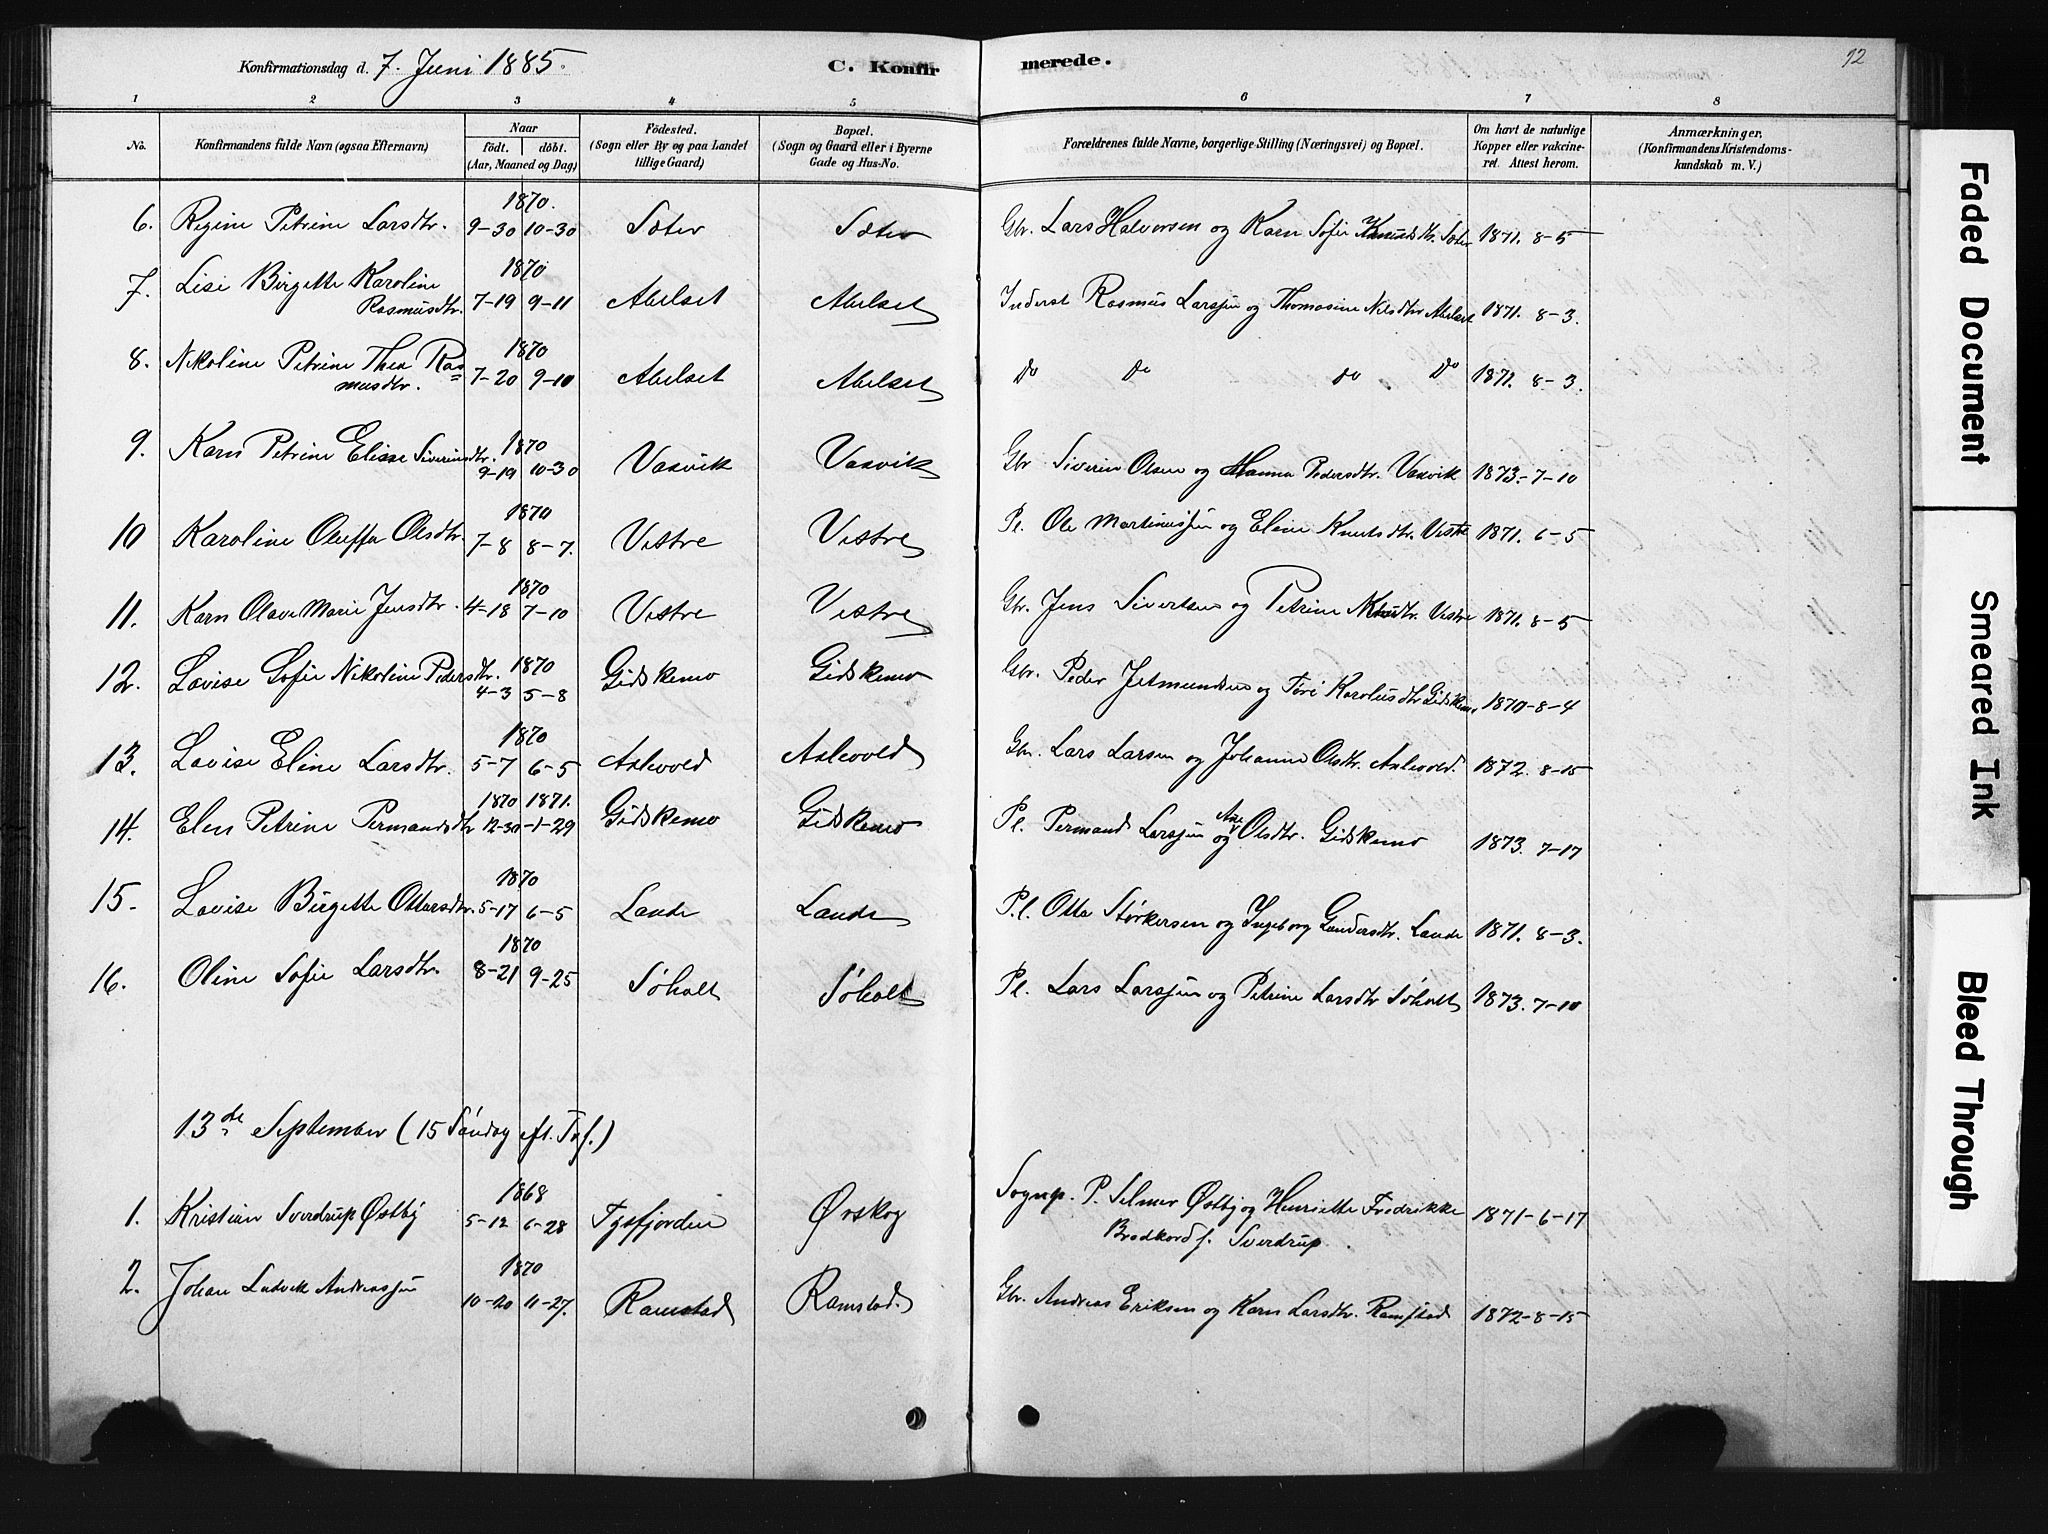 Konfirmationsdag d. 7. Juni 1885.
C. Konfirmerede.
92
1 2 3 4 5 6 7 8
No.
Konfirmandens fulde Navn (ogsaa Efternavn)
Naar
födt. döbt.
(Aar, Maaned og Dag)
Födested.
(Sogn eller By og paa Landet
tillige Gaard)
Bopæl.
(Sogn og Gaard eller i Byerne
Gade og Hus-No.
Forældrenes fulde Navne, borgerlige Stilling (Næringsvei) og Bopæl.
Om havt de naturlige
Kopper eller vakcine-
ret. Attest herom.
Anmærkninger,
(Konfirmandens Kristendoms-
kundskab m. V.)
1870.
6. Regine Petrine Larsdtr. 9-30 10-30 Sæter Sæter Gbr. Lars Halvorsen og Karn Sofie Knudsdtr. Sæter 1871. 8-5
1870
7. Lise Birgette Karoline
Rasmusdtr. 7-19 9-11 Abelset Abelset Inderst Rasmus Larssen og Thomasine Nilsdtr Abelset 1871. 8-3.
1870
8. Nikoline Petrine Thea Ras=
musdtr. 7-20 9-10 Abelset Abelset Do Do Do Do 1871. 8-3.
1870
9. Karn Petrine Elisse Siverinsdtr. 9-19 10-30 Vaxvik Vaxvik Gbr Siverin Olsen og Hanna Pedersdtr. Vaxvik 1873.-7-10
1870
10 Karoline Oluffa Olsdtr. 7-8 8-7. Vestre Vestre Pl. Ole Martinussen og Eline Knutsdtr. Vestre 1871. 6-5
1870
11. Karn Olave Marie Jensdtr. 4-18 7-10 Vestre Vestre Gbr. Jens Sivertsen og Petrine Knutdtr. Vestre 1871. 8-5
1870
12. Lovise Sofie Nikoline Pedersdtr. 4-3 5-8 Gidskemo Gidskemo Gbr. Peder Jetmundsen og Töri Karolusdtr Gidskemo 1870-8-4
1870
13. Lovise Eline Larsdtr. 5-7 6-5 Aslevold Aslevold Gbr. Lars Larsen og Johanne Olsdtr. Aslevold. 1872. 8-15
1870 1871.
14. Elen Petrine Permandsdtr 12-30 -1-29 Gidskemo Gidskemo Pl. Permand Larssen og Ane Olsdtr. Gidskemo 1873. 7-17
1870
15. Lovise Birgette Ottarsdtr. 5-17 6-5 Lande Lande Pl. Otte Störkersen og Ingeborg Gundersdtr. Lande 1871. 8-3.
1870
16. Oline Sofie Larsdtr. 8-21 9-25 Söholt Söholt Pl. Lars Larssen og Petrine Larsdtr Söholt 1873. 7-10
13de September (15 Söndag eft. Tref.)
1868
1. Kristian Sverdrup Østby 5-12 6-28 Tysfjorden Ørskog Sognep. P. Selmer Østby og Henriette Fredrikke
Brodkorb f. Sverdrup. 1871-6-17
1870
2. Johan Ludvik Andreassen 10-20 11-27. Ramstad Ramstad. Gbr. Andreas Eriksen og Karn Larsdtr. Ramstad 1872-8-15
Faded Document
Smeared Ink
Bleed Through